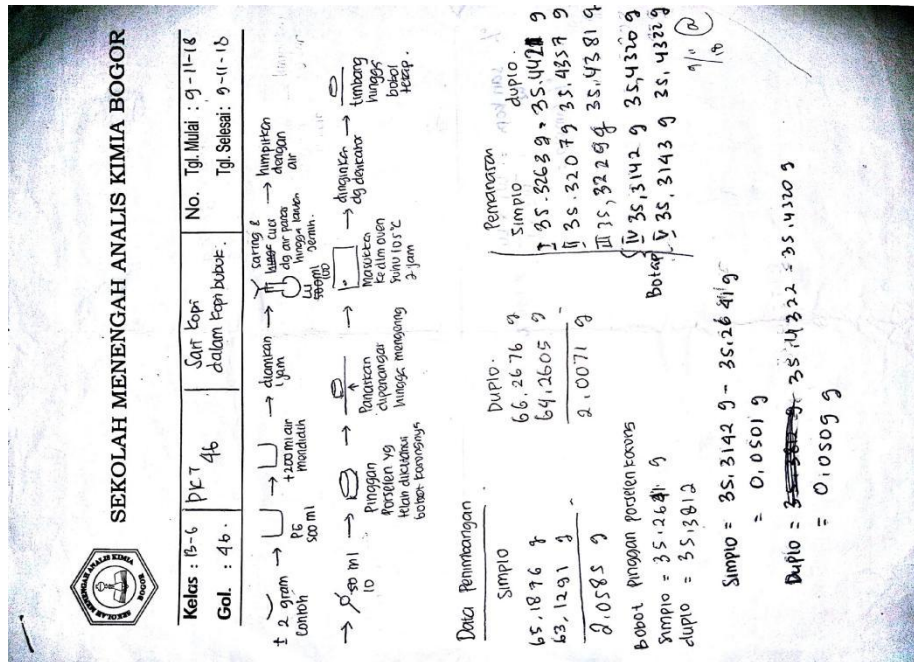 SEKOLAH MENENGAH ANALIS KIMIA BOGOR
SEKOLAH MENENGAH ANALIS KIMIA
BOGOR
Kelas : 13-6
PKT
Sari kopi
No.
Tgl. Mulai : 9-11-18
Gol. : 46.
46
dalam kopi bubuk.
Tgl. Selesai: 9-11-18
± 2 gram Contoh → PG 500 ml → +200 ml air mendidih → diamkan 1 jam → saring & cuci dg air panas hingga jernih. → himpitkan dengan air
500 ml
→ 50 ml
10
→ Pinggan Porselen yg telah diketahui bobot kosongnya → Panaskan dipenangas hingga mengering → Masukkan ke dlm oven suhu 105°C 2 jam → dinginkan dg → timbang hingga bobot tetap.
Data Penimbangan
Simplo
65,1876 g
63,1291 g -
2,0585 g
Duplo.
66,2676 g
64,2605 g -
2,0071 g
Pemanasan
Simplo duplo.
I 35.3263 g 35.4421 g
II 35.3207 g 35.4357 g
III 35,3229 g 35.4381 g
Botap
IV 35,3142 g 35,4320 g
V 35,3143 g 35,4322 g
9/11
18
Bobot pinggan porselen kosong
Simplo = 35.2641 g
duplo = 35,3812
Simplo = 35,3142 g - 35.2641 g
= 0,0501 g
Duplo = 35,4322 = 35.4320 g
= 0,0509 g